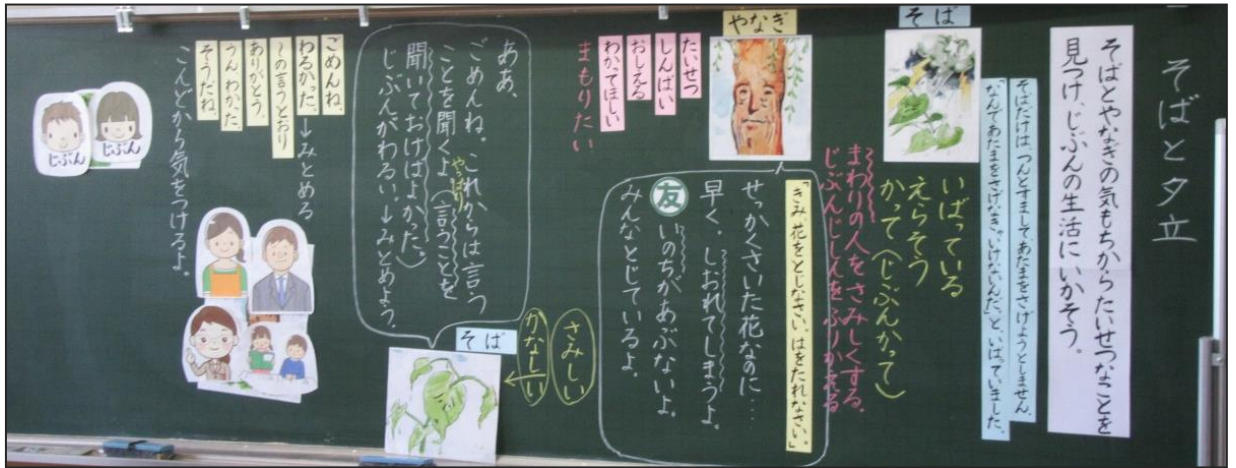 そばと夕立
そばとやなぎの気もちからたいせつなことを
見つけ、じぶんの生活にいかそう。
そばだけは、つんとすましてあたまをさげようとしません。
「なんであたまをさげなきゃいけないんだ」と、いばっていました。
そば
いばっている
えらそう
かって(じぶんかって)
まわりの人をさみしくする。
じぶんじしんをふりかえる
やなぎ
「きみ、花をとじなさい。はをたれなさい。」
せっかくさいた花なのに…
早く。しおれてしまうよ。
友 いのちがあぶないよ。
みんなとじているよ。
たいせつ
しんぱい
おしえる
わかてほしい
まもりたい
さみしい
かなしい
そば
ああ、
ごめんね。これからは言う
ことを聞くよ。(言うことを
やっぱり
聞いておけばよかった。)
じぶんがわるい。→みとめよう。
ごめんね。
わるかった。→みとめる
〜の言うとおり
ありがとう。
うん、わかった。
そうだね。
こんどから気をつけるよ。
じぶん
じぶん